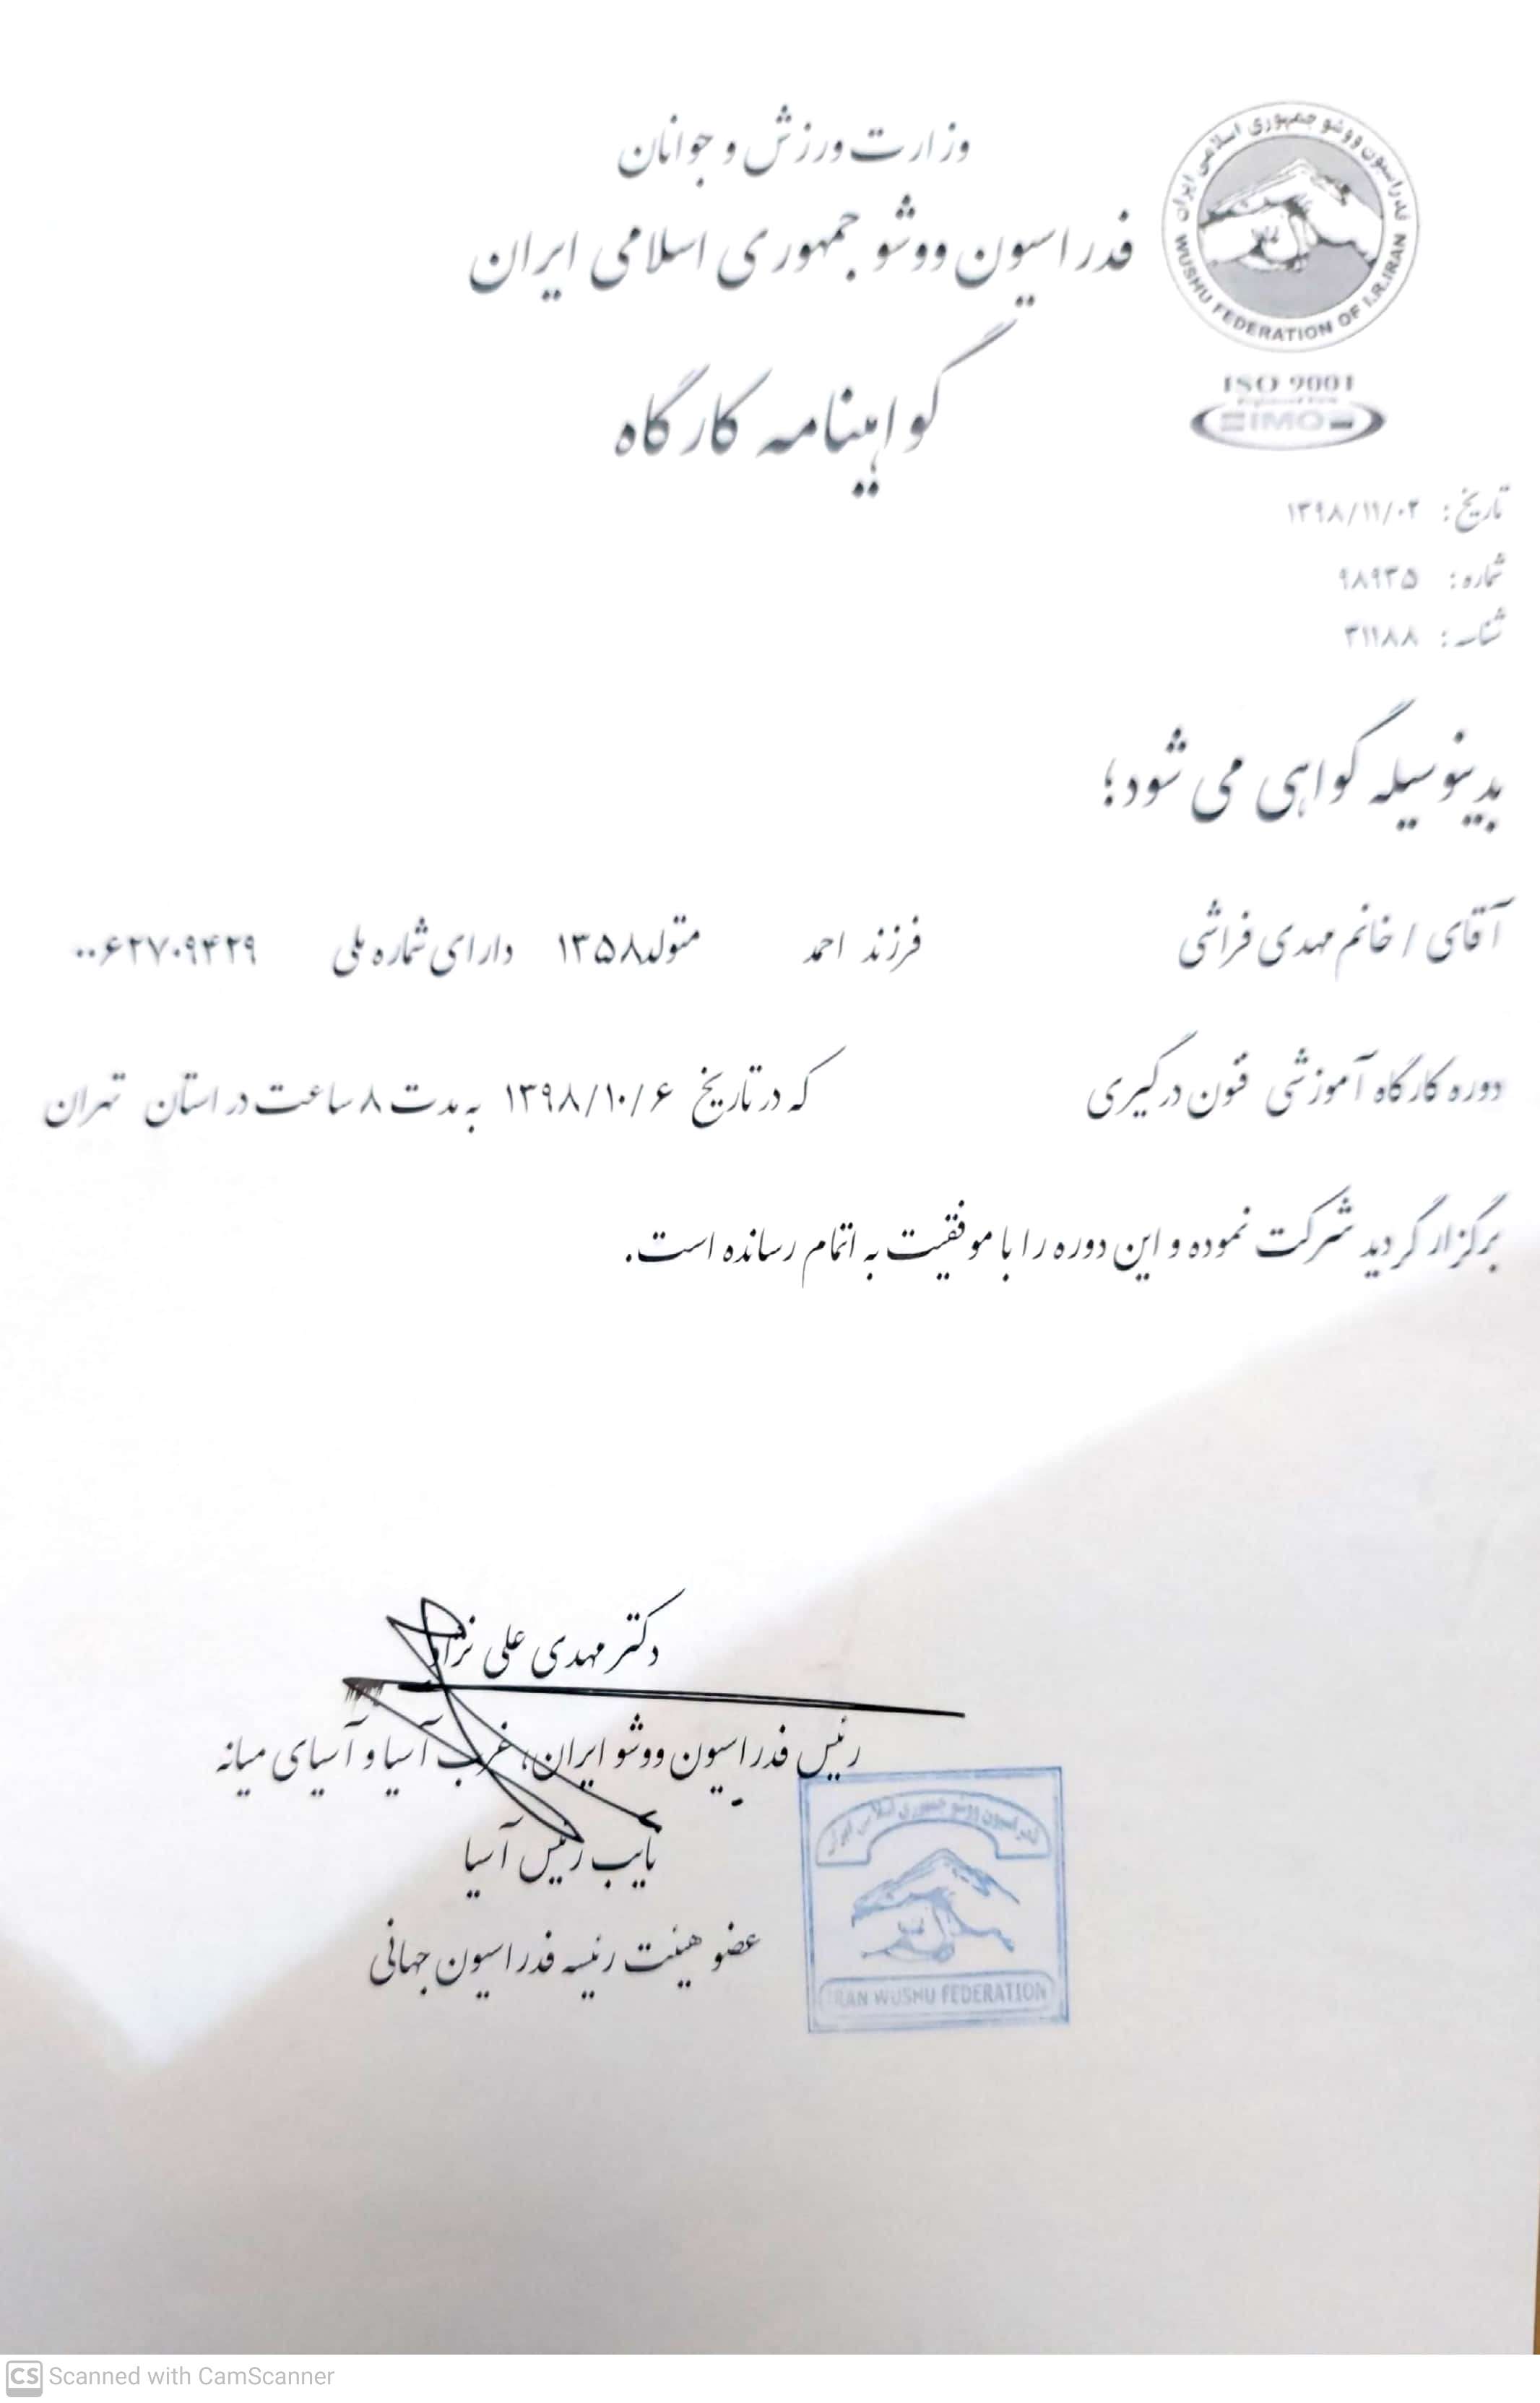 وزارت ورزش و جوانان
فدراسیون ووشو جمهوری اسلامی ایران
گواهینامه کارگاه
فدراسیون ووشو جمهوری اسلامی ایران
WUSHU FEDERATION OF I.R.IRAN
ISO 9001
IMQ
تاریخ: ۱۳۹۸/۱۱/۰۲
شماره: ۹۸۹۳۵
شناسه: ۳۱۱۸۸
بدینوسیله گواهی می شود؛
آقای / خانم مهدی فراشی فرزند احمد متولد ۱۳۵۸ دارای شماره ملی ۰۰۶۲۷۰۹۴۲۹
دوره کارگاه آموزشی فنون درگیری که در تاریخ ۱۳۹۸/۱۰/۶ به مدت ۸ ساعت در استان تهران
برگزار گردید شرکت نموده و این دوره را با موفقیت به اتمام رسانده است.
دکتر مهدی علی نژاد
رئیس فدراسیون ووشو ایران، غرب آسیا و آسیای میانه
نایب رئیس آسیا
عضو هیئت رئیسه فدراسیون جهانی
فدراسیون ووشو جمهوری اسلامی ایران
IRAN WUSHU FEDERATION
CS Scanned with CamScanner